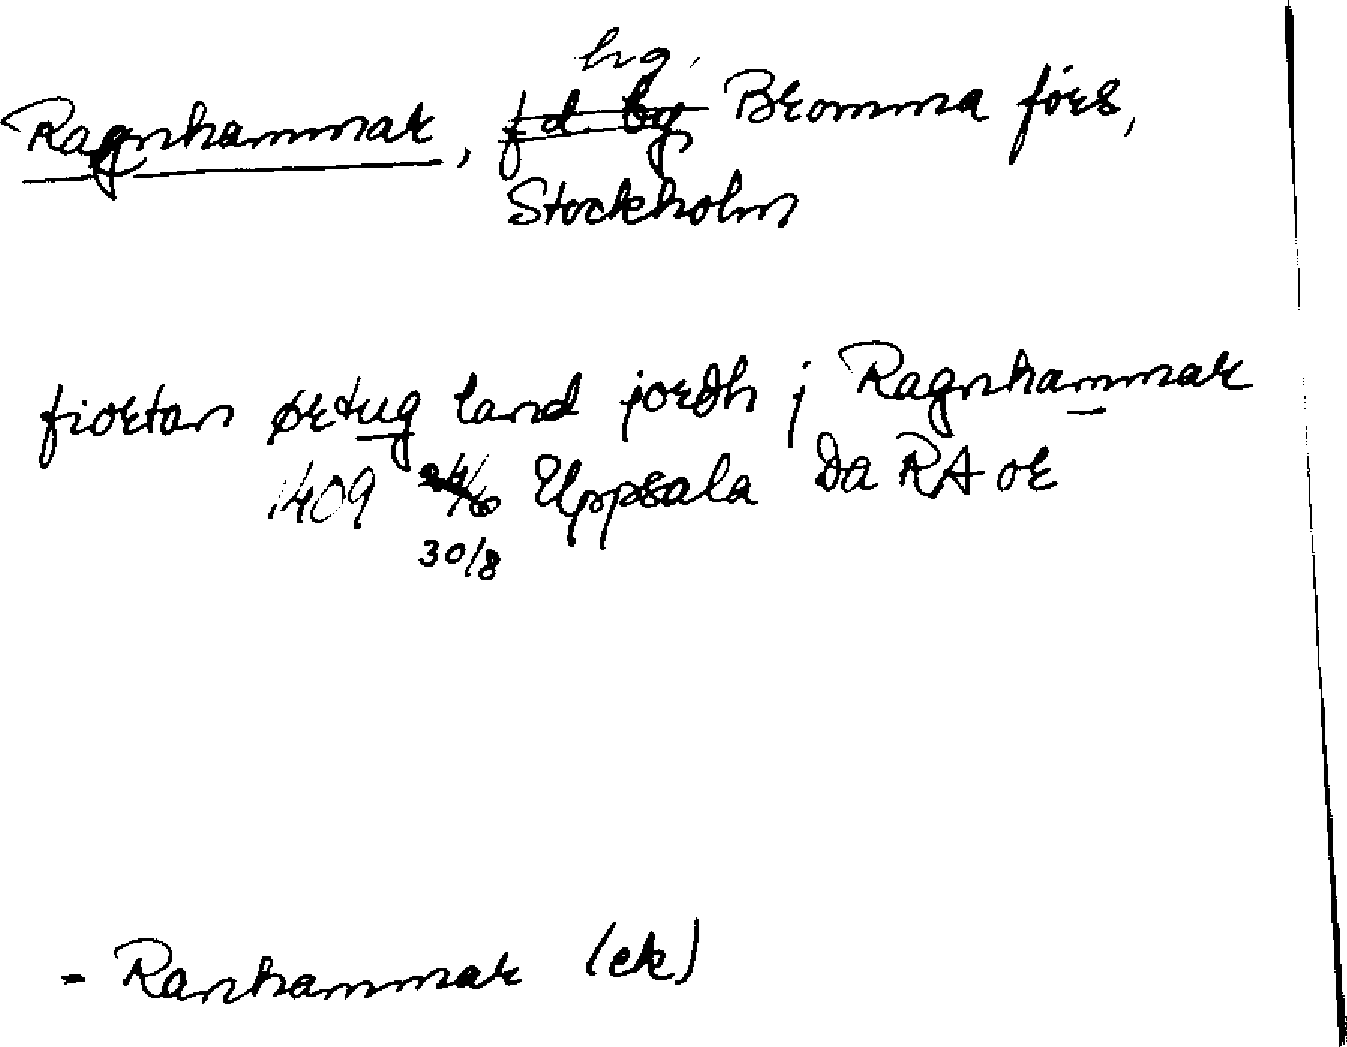 hg.
Ragnhammar, f d. by Bromma förs,
Stockholm
fiortan ørtug land jordh j Ragnhammar
1409 24/6 Uppsala Da RA or
30/8
- Ranhammar (ek)